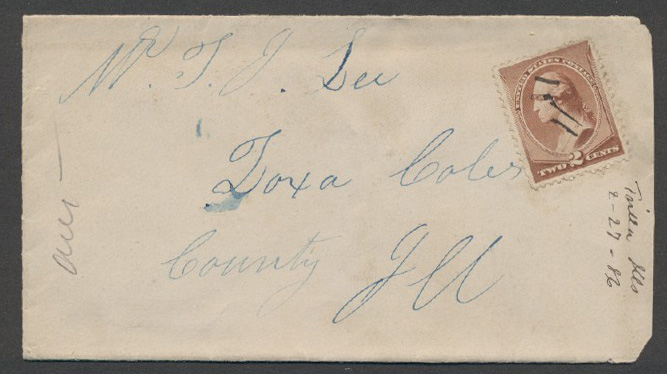 Mr. T. J. Lee
Loxa Coles
County Ill
UNITED STATES POSTAGE
TWO 2 CENTS
ans —
Ills
2-27-86